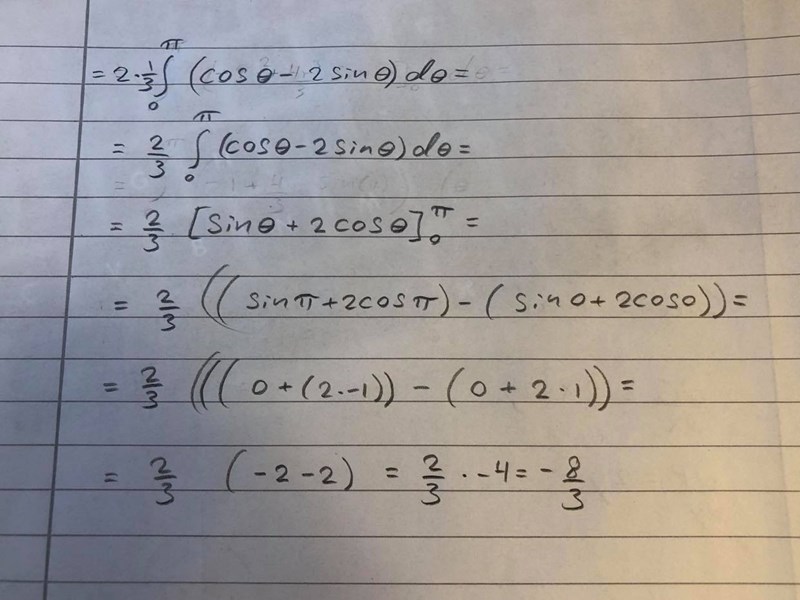 = 2 · 1/3 ∫₀^π (cosθ - 2 sinθ) dθ =
= 2/3 ∫₀^π (cosθ - 2 sinθ) dθ =
= 2/3 [sinθ + 2 cosθ]₀^π =
= 2/3 ((sinπ + 2cosπ) - (sin0 + 2cos0)) =
= 2/3 (((0 + (2·-1)) - (0 + 2·1)) =
= 2/3 (-2 - 2) = 2/3 · -4 = -8/3